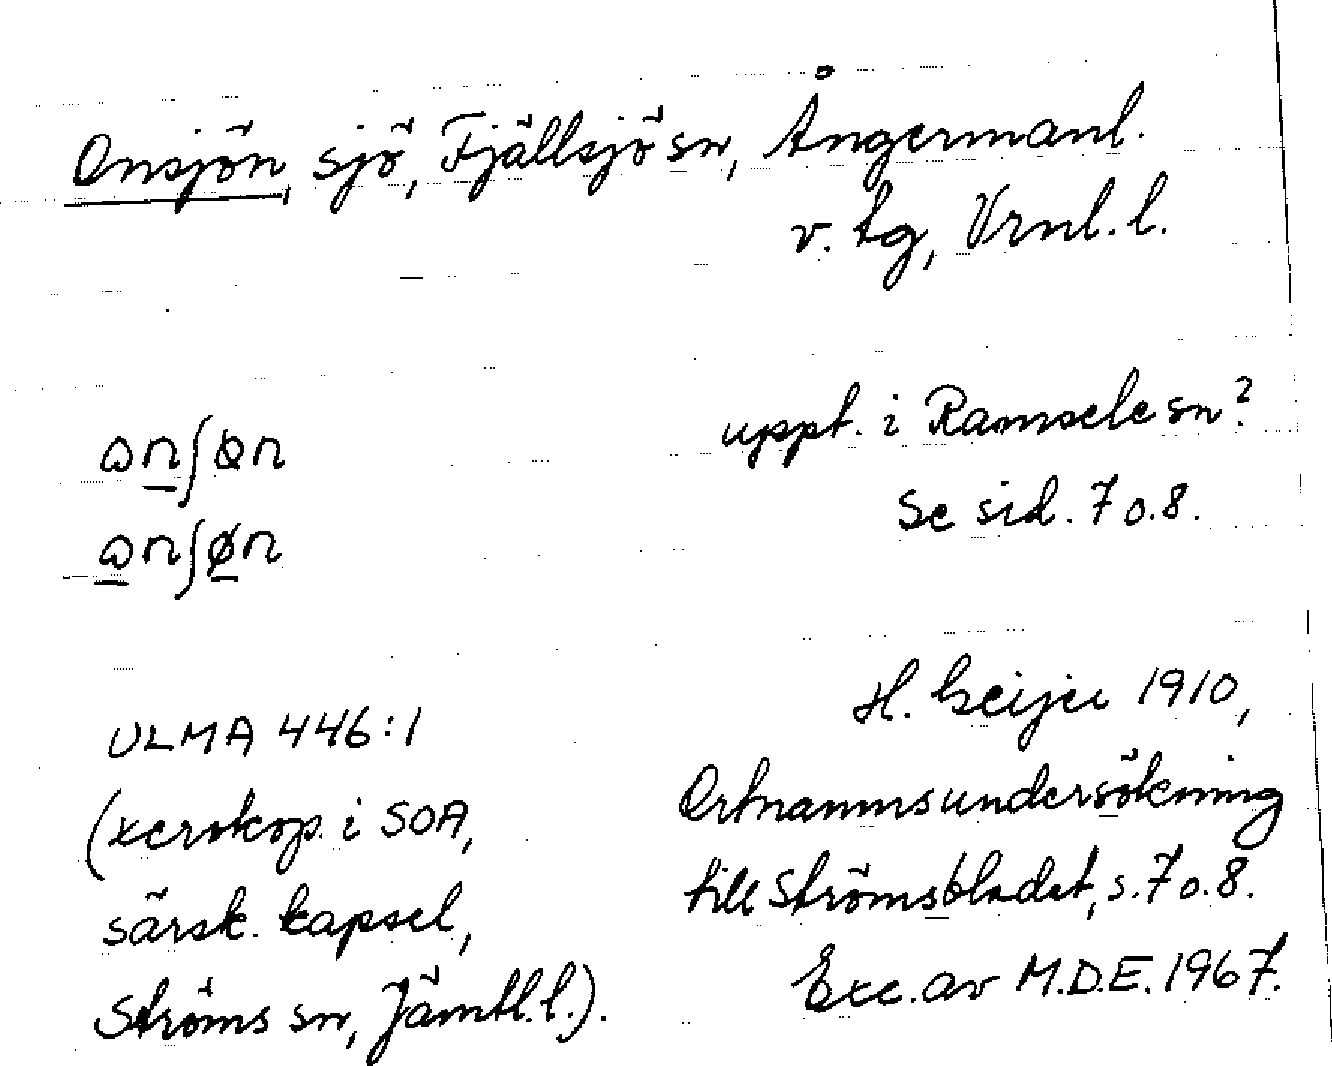 Onsjön, sjö, Fjällsjö sn, Ångermanl.
v. tg, Vrnl. l.
uppt. i Ramsele sn?
Se sid. 7 o. 8.
H. Geijer 1910,
ULMA 446:1
Ortnamnsundersökning
(xerokop. i SOA,
till Strömsbladet, s. 7 o. 8.
särsk. kapsel,
Exc. av M.D.E. 1967.
Ströms sn, Jämtl. l.).